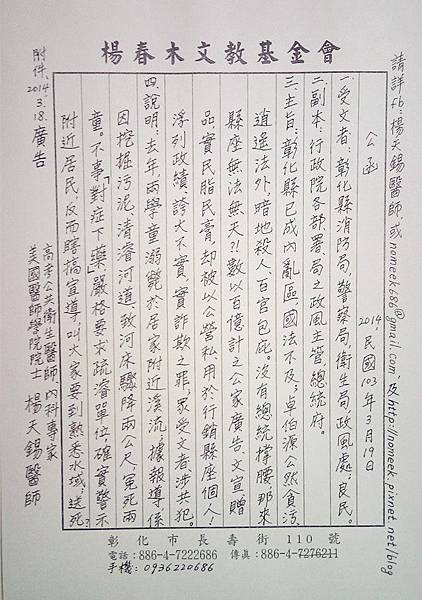 楊春木文教基金會
請詳fb:楊天錫醫師,或nomeek686@gmail.com及http://nomeek.pixnet.net/blog
公函
2014.民國103年3月19日
一.受文者:彰化縣消防局,警察局,衛生局政風處,良民。
二.副本:行政院各部.署.局之政風主管總統府。
三.主旨:彰化縣已成內亂區,國法不及;卓伯源公然貪污,
逍遥法外,暗地殺人,百官包庇。沒有總統撐腰,那來
縣座無法無天?!數以百億計之公家廣告.文宣.贈
品,實民脂民膏,却被以公營私用於行銷縣座個人!
浮列政績,誇大不實,實詐欺之罪,眾受文者,涉共犯。
四.說明:去年,兩學童溺斃於居家附近溪流;據報導係
因挖掘污泥,清濬河道,致河床驟降兩公尺,冤死兩
童。不事「對症下藥」嚴格要求疏濬單位,確實警示
附近居民,反而瞎搞宣導,叫大家要到熟悉水域,送死?
附件.2014.3.18.廣告
高考公共衛生醫師,內科專家
美國醫師學院院士 楊天錫醫師
彰化市長壽街110號
電話:886-4-7222686 傳真:886-4-7276211
手機:0936220686